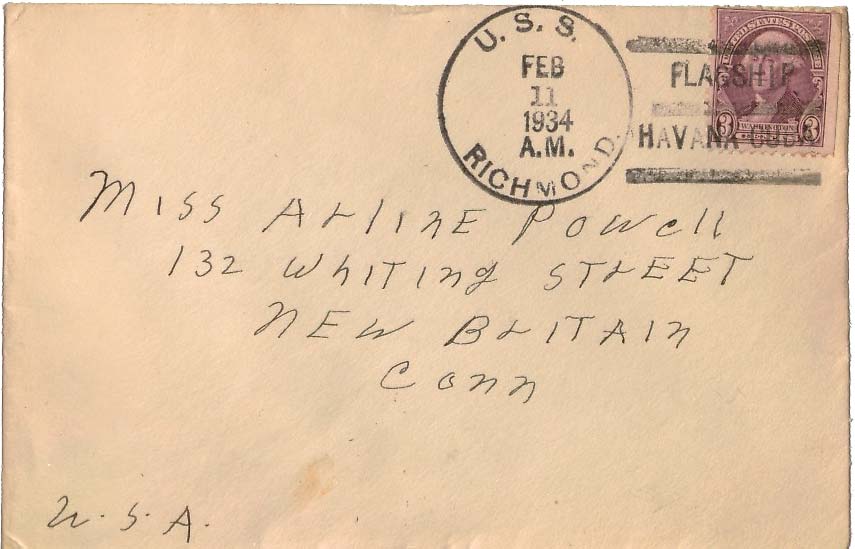 U. S. S.
FEB
11
1934
A.M.
RICHMOND.
FLAGSHIP
HAVANA CUBA
UNITED STATES POSTAGE
3 WASHINGTON 3
Miss Arline Powell
132 Whiting Street
New Britain
Conn
U.S.A.